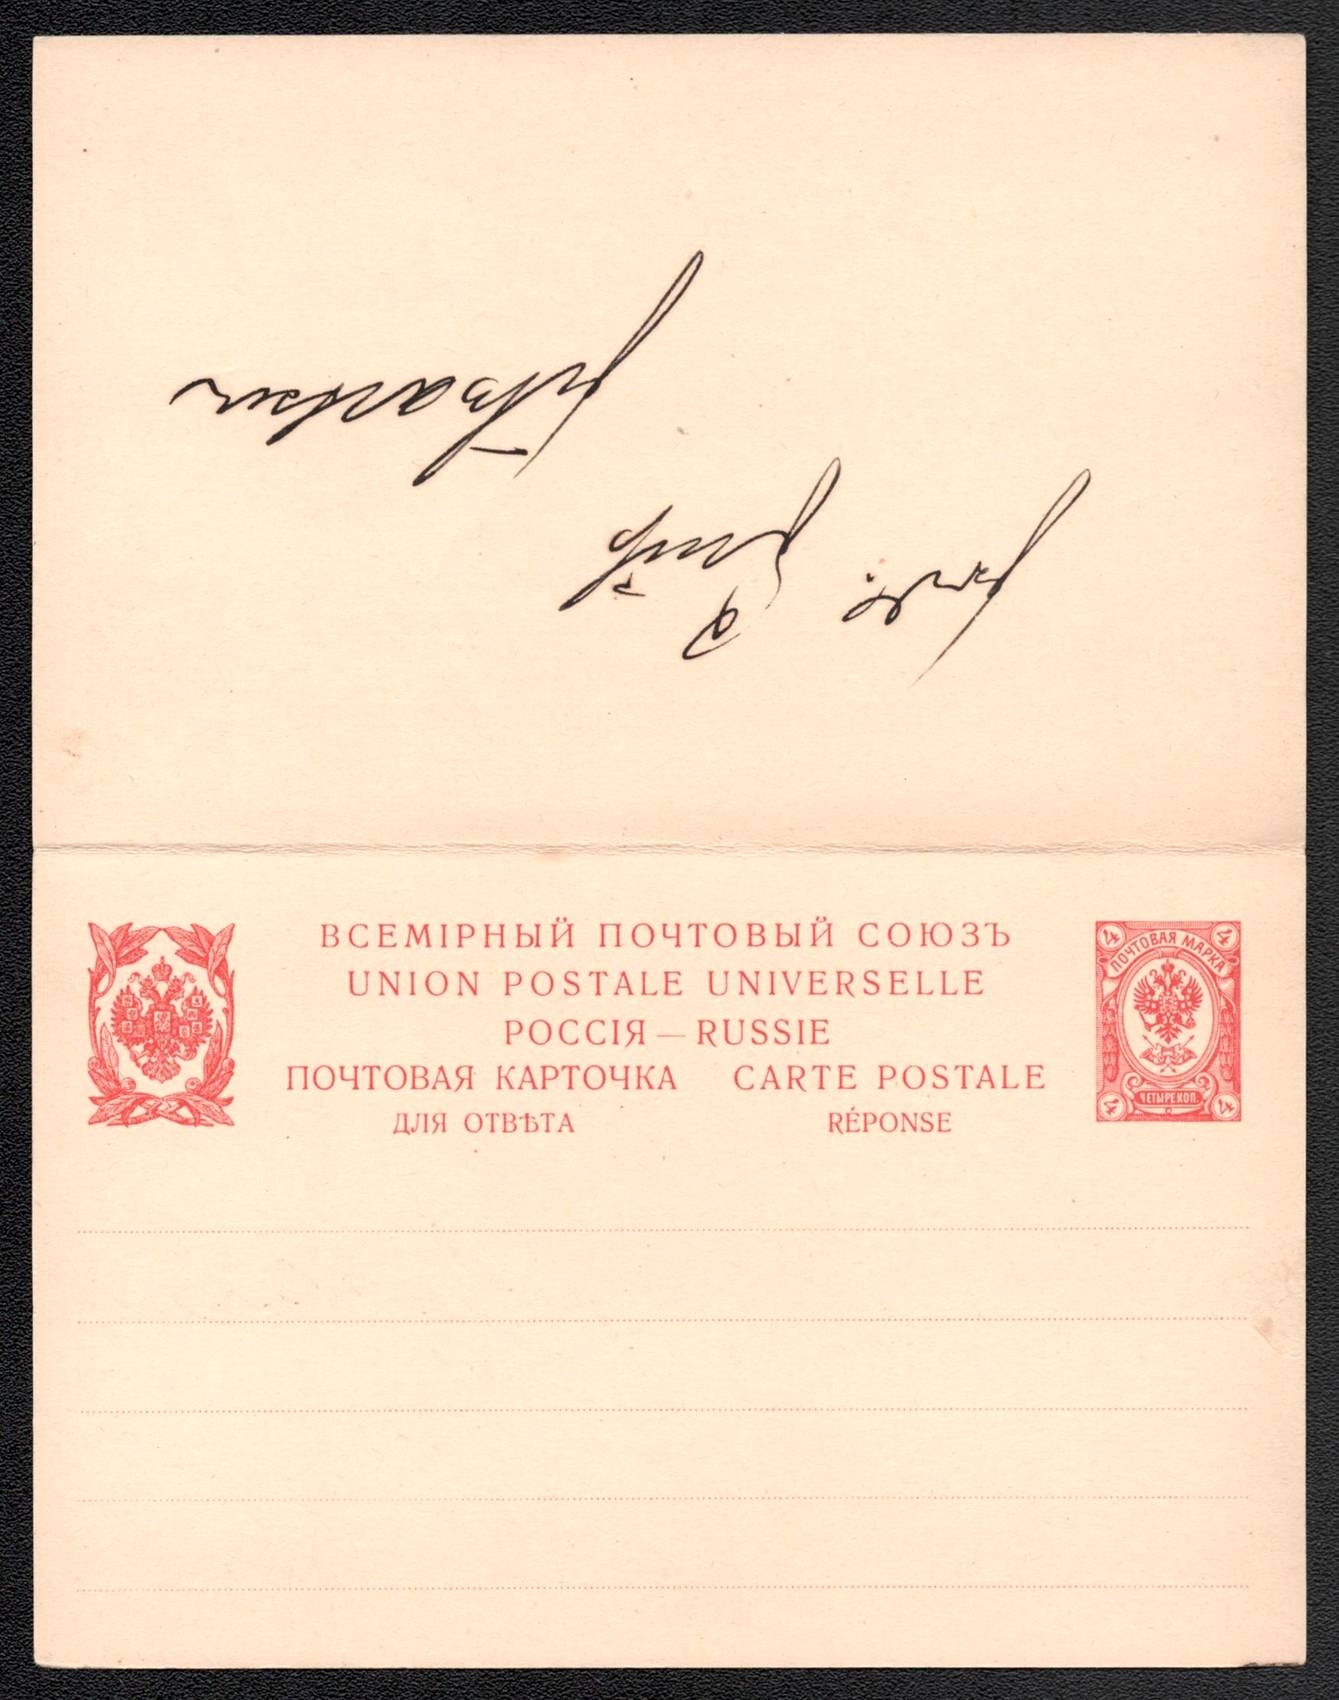 ВСЕМІРНЫЙ ПОЧТОВЫЙ СОЮЗЪ
UNION POSTALE UNIVERSELLE
РОССІЯ — RUSSIE
ПОЧТОВАЯ КАРТОЧКА CARTE POSTALE
ДЛЯ ОТВѢТА RÉPONSE
4 4
ПОЧТОВАЯ МАРКА
ЧЕТЫРЕ КОП.
4 4